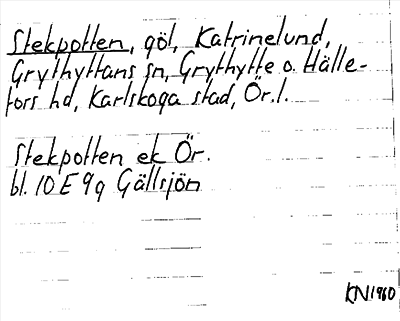 Stekpotten, göl, Katrinelund,
Grythyttans sn, Grythytte o. Hälle-
fors hd, Karlskoga stad, Ör. l.
Stekpotten ek Ör.
bl. 10 E 9g Gällsjön
KN 1960